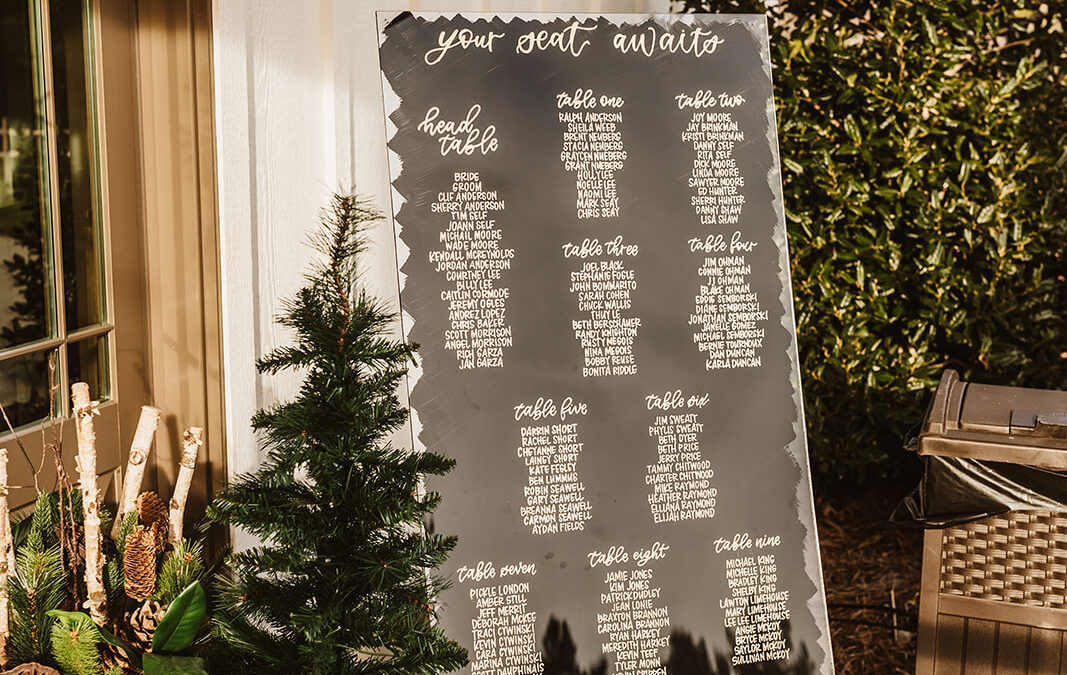 your seat awaits
head
table
BRIDE
GROOM
CLIF ANDERSON
SHERRY ANDERSON
TIM SELF
JOANN SELF
MICHAIL MOORE
WADE MOORE
KENDALL MCREYNOLDS
JORDAN ANDERSON
COURTNEY LEE
BILLY LEE
CAITLIN CORMODE
JEREMY OGLES
ANDREZ LOPEZ
CHRIS BAKER
SCOTT MORRISON
ANGEL MORRISON
RICH GARZA
JAN GARZA
table one
RALPH ANDERSON
SHEILA WEEB
BRENT NEWBERG
STACIA NEWBERG
GRAYCEN NUEBERG
GRANT NUEBERG
HOLLY LEE
NOELLE LEE
NAOMI LEE
MARK SEAY
CHRIS SEAY
table two
JOY MOORE
JAY BRINKMAN
KRISTI BRINKMAN
DANNY SELF
RITA SELF
DICK MOORE
LINDA MOORE
SAWYER MOORE
ED HUNTER
SHERRI HUNTER
DANNY SHAW
LISA SHAW
table three
JOEL BLACK
STEPHANIE FOGLE
JOHN BOMMARITO
SARAH COHEN
CHUCK WALLIS
THUY LE
BETH BERSCHAUER
RANDY KNIGHTON
RUSTY MEGOIS
NINA MEGOIS
BOBBY REUSE
BONITA RIDDLE
table four
JIM OHMAN
CONNIE OHMAN
JJ OHMAN
BLAKE OHMAN
EDDIE SEMBORSKI
DIANE SEMBORSKI
JONATHAN SEMBORSKI
JANELLE GOMEZ
MICHAEL SEMBORSKI
BERNIE TOURNOUX
DAN DUNCAN
KARLA DUNCAN
table five
DARRIN SHORT
RACHEL SHORT
CHEYANNE SHORT
LAINEY SHORT
KATE FEGLEY
BEN LUMMUS
ROBIN SEAWELL
GARY SEAWELL
BREANNA SEAWELL
CARMON SEAWELL
AYDAN FIELDS
table six
JIM SWEATT
PHYLIS SWEATT
BETH DYER
BETH PRICE
JERRY PRICE
TAMMY CHITWOOD
CHARTER CHITWOYD
MIKE RAYMOND
HEATHER RAYMOND
ELLIANA RAYMOND
ELIJAH RAYMOND
table seven
PICKLE LONDON
AMBER STILL
JEFF MERRIT
DEBORAH MCKEE
TRACI CYWINSKI
KEVIN CYWINSKI
CARA CYWINSKI
MARINA CYWINSKI
SCOTT DAUPHINAIS
table eight
JAMIE JONES
KIM JONES
PATRICK DUDLEY
JEAN LONIE
BRAXTON BRANNON
CAROLINA BRANNON
RYAN HARKEY
MEREDITH HARKEY
KEVIN TEEF
TYLER MONN
table nine
MICHAEL KING
MICHELLE KING
BRADLEY KING
SHELBY KING
LAWTON LIMEHOUSE
MARY LIMEHOUSE
LEE LEE LIMEHOUSE
ANGIE MCKOY
BRYCE MCKOY
SAYLOR MCKOY
SULLIVAN MCKOY